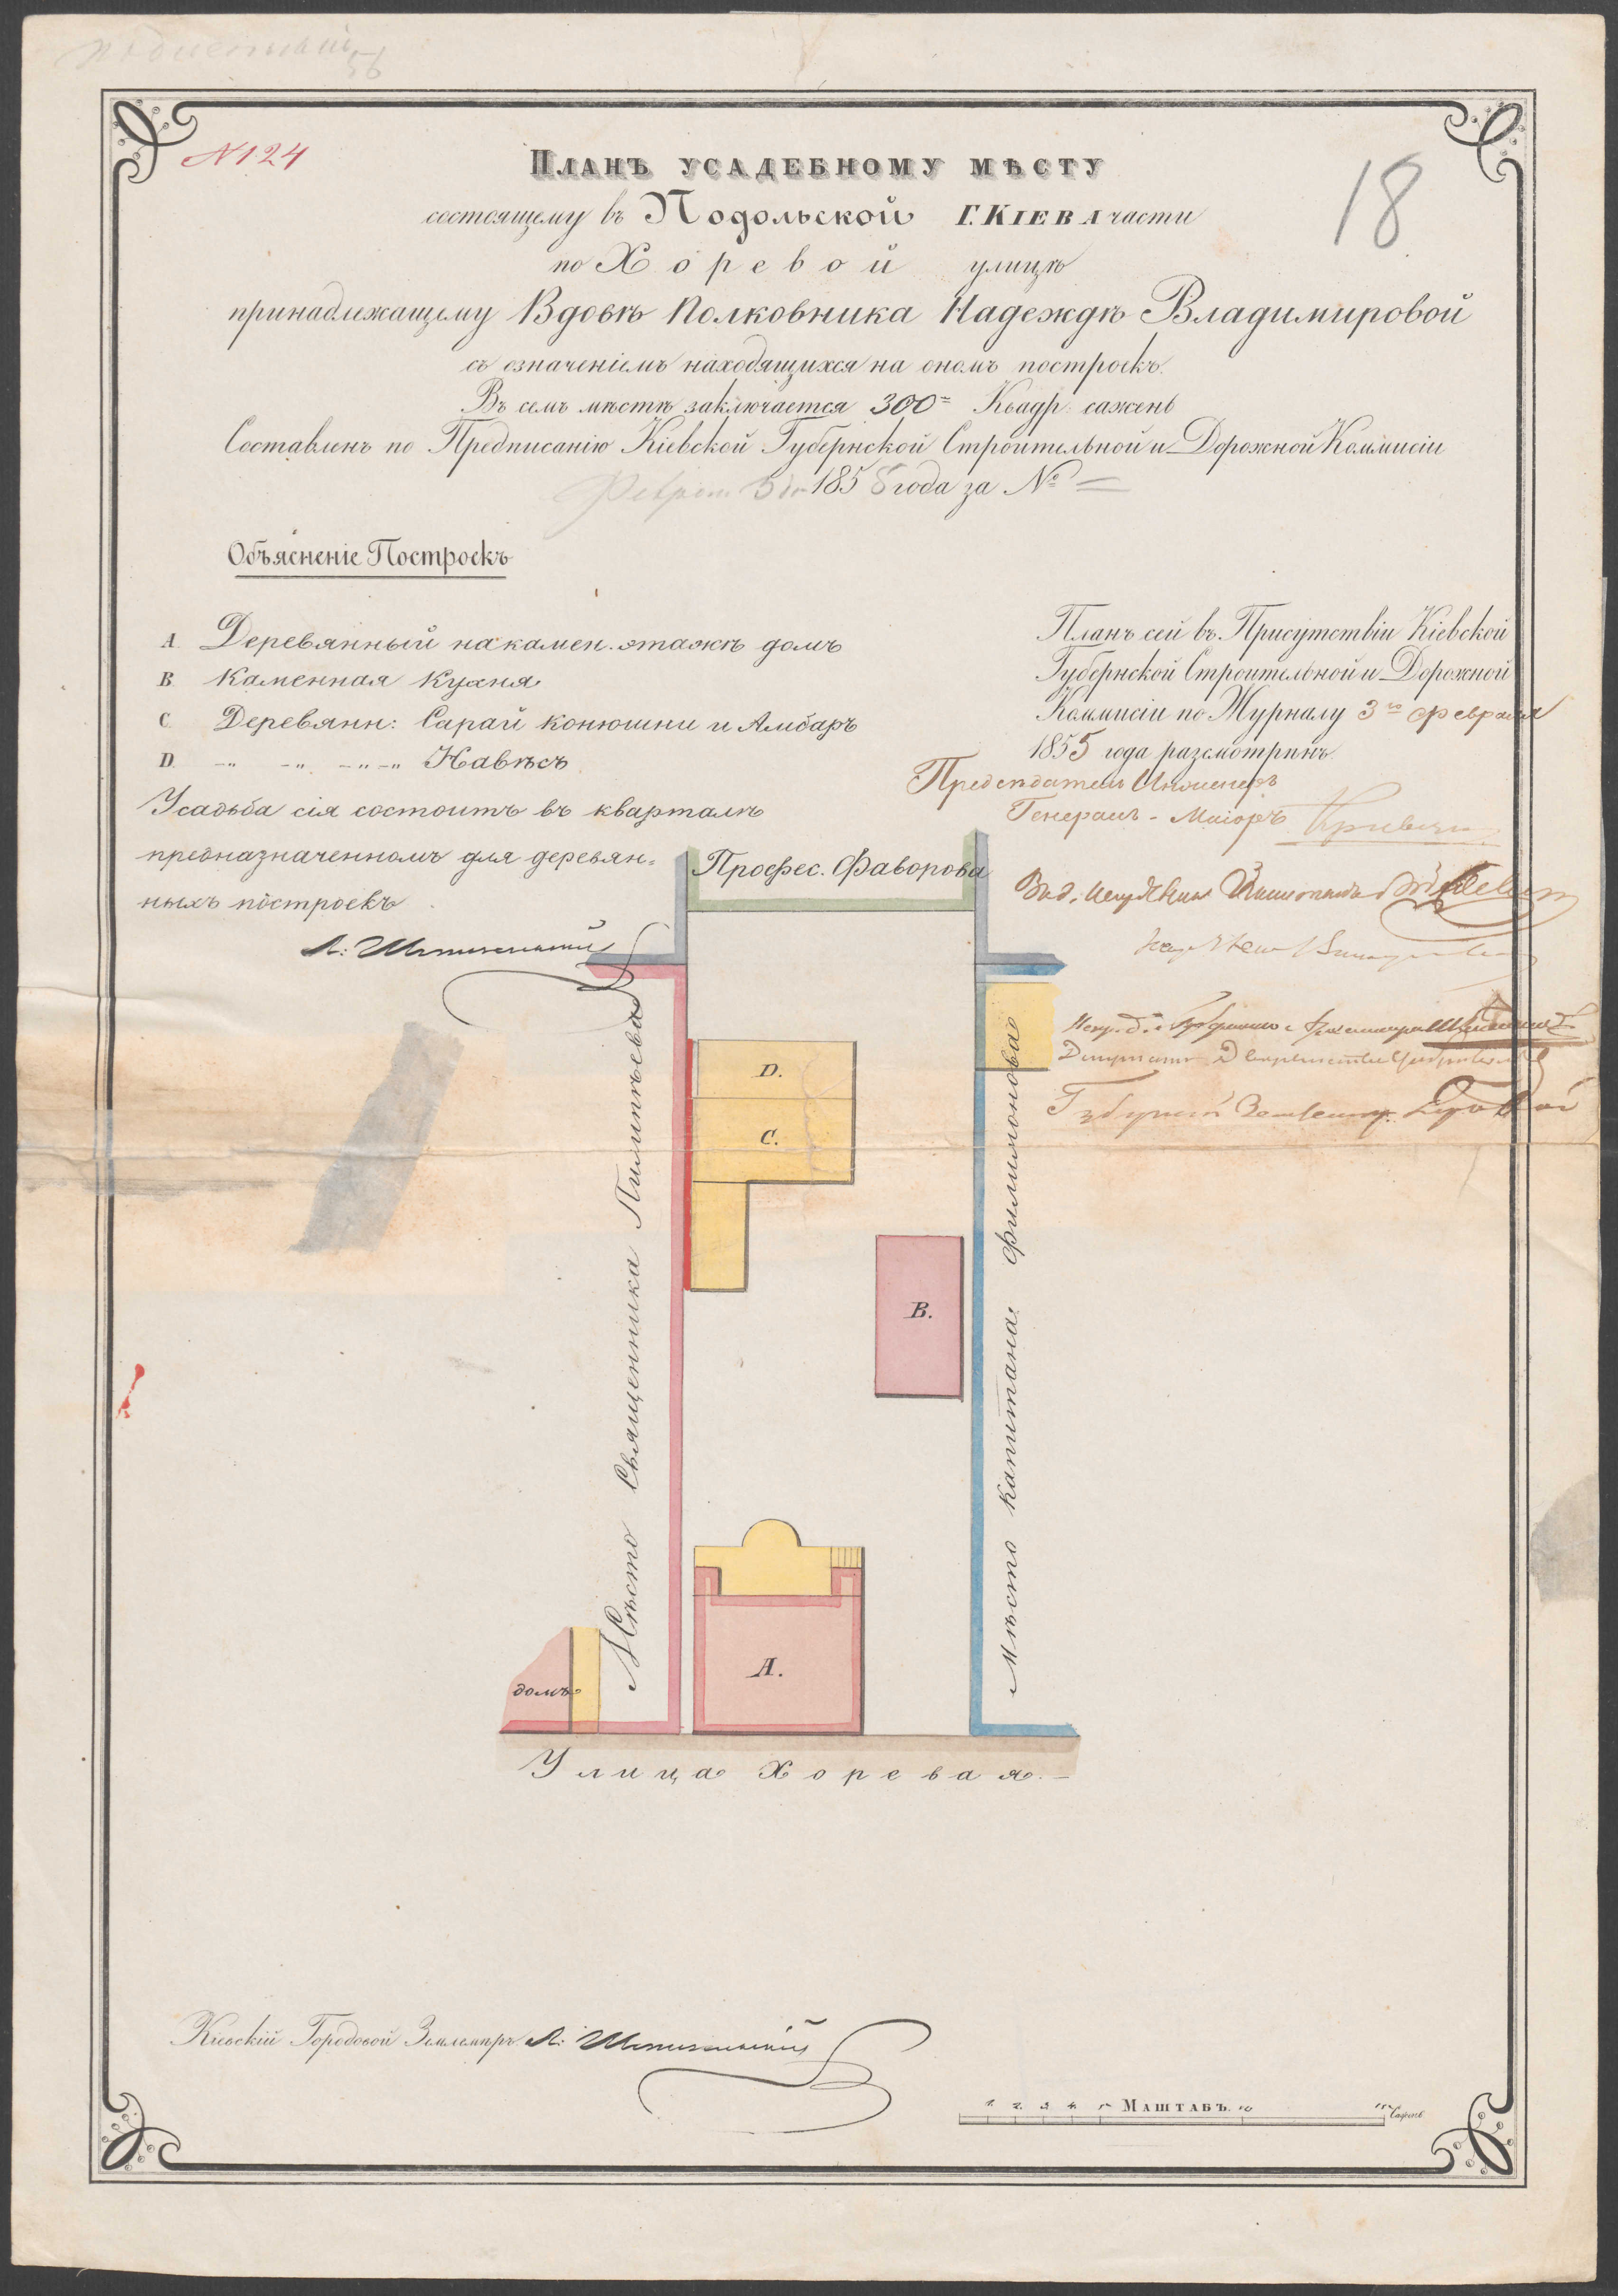 N 124
18
Планъ усадебному мѣсту
состоящему въ Подольской Г. Кіева части
по Хоревой улицѣ
принадлежащему Вдовѣ Полковника Надеждѣ Владимировой
съ означеніемъ находящихся на ономъ построекъ.
Въ семъ мѣстѣ заключается 300 Квадр: сажень
Составленъ по Предписанію Кіевской Губернской Строительной и Дорожной Коммисіи
1855 года за №
Объясненіе Построекъ
A. Деревянный на камен. этажѣ домъ
B. Каменная Кухня
C. Деревянн: Сарай конюшни и Амбаръ
D. -"- -"- -"-"- Навѣсъ
Усадьба сія состоитъ въ кварталѣ
предназначенномъ для деревян=
ныхъ построекъ
Планъ сей въ Присутствіи Кіевской
Губернской Строительной и Дорожной
Коммисіи по Журналу 3го февраля
1855 года разсмотрѣнъ.
Предсѣдатель Инженеръ
Генералъ-Маіоръ
Профес. Фаворова
D.
C.
B.
A.
Мѣсто Священника Пилипѣева
Мѣсто капитана Филимонова
домъ
Улица Хоревая.
Кіевскій Городовой Землемѣръ
1. 2. 3. 4. 5 Маштабъ. 10 15 Сажень